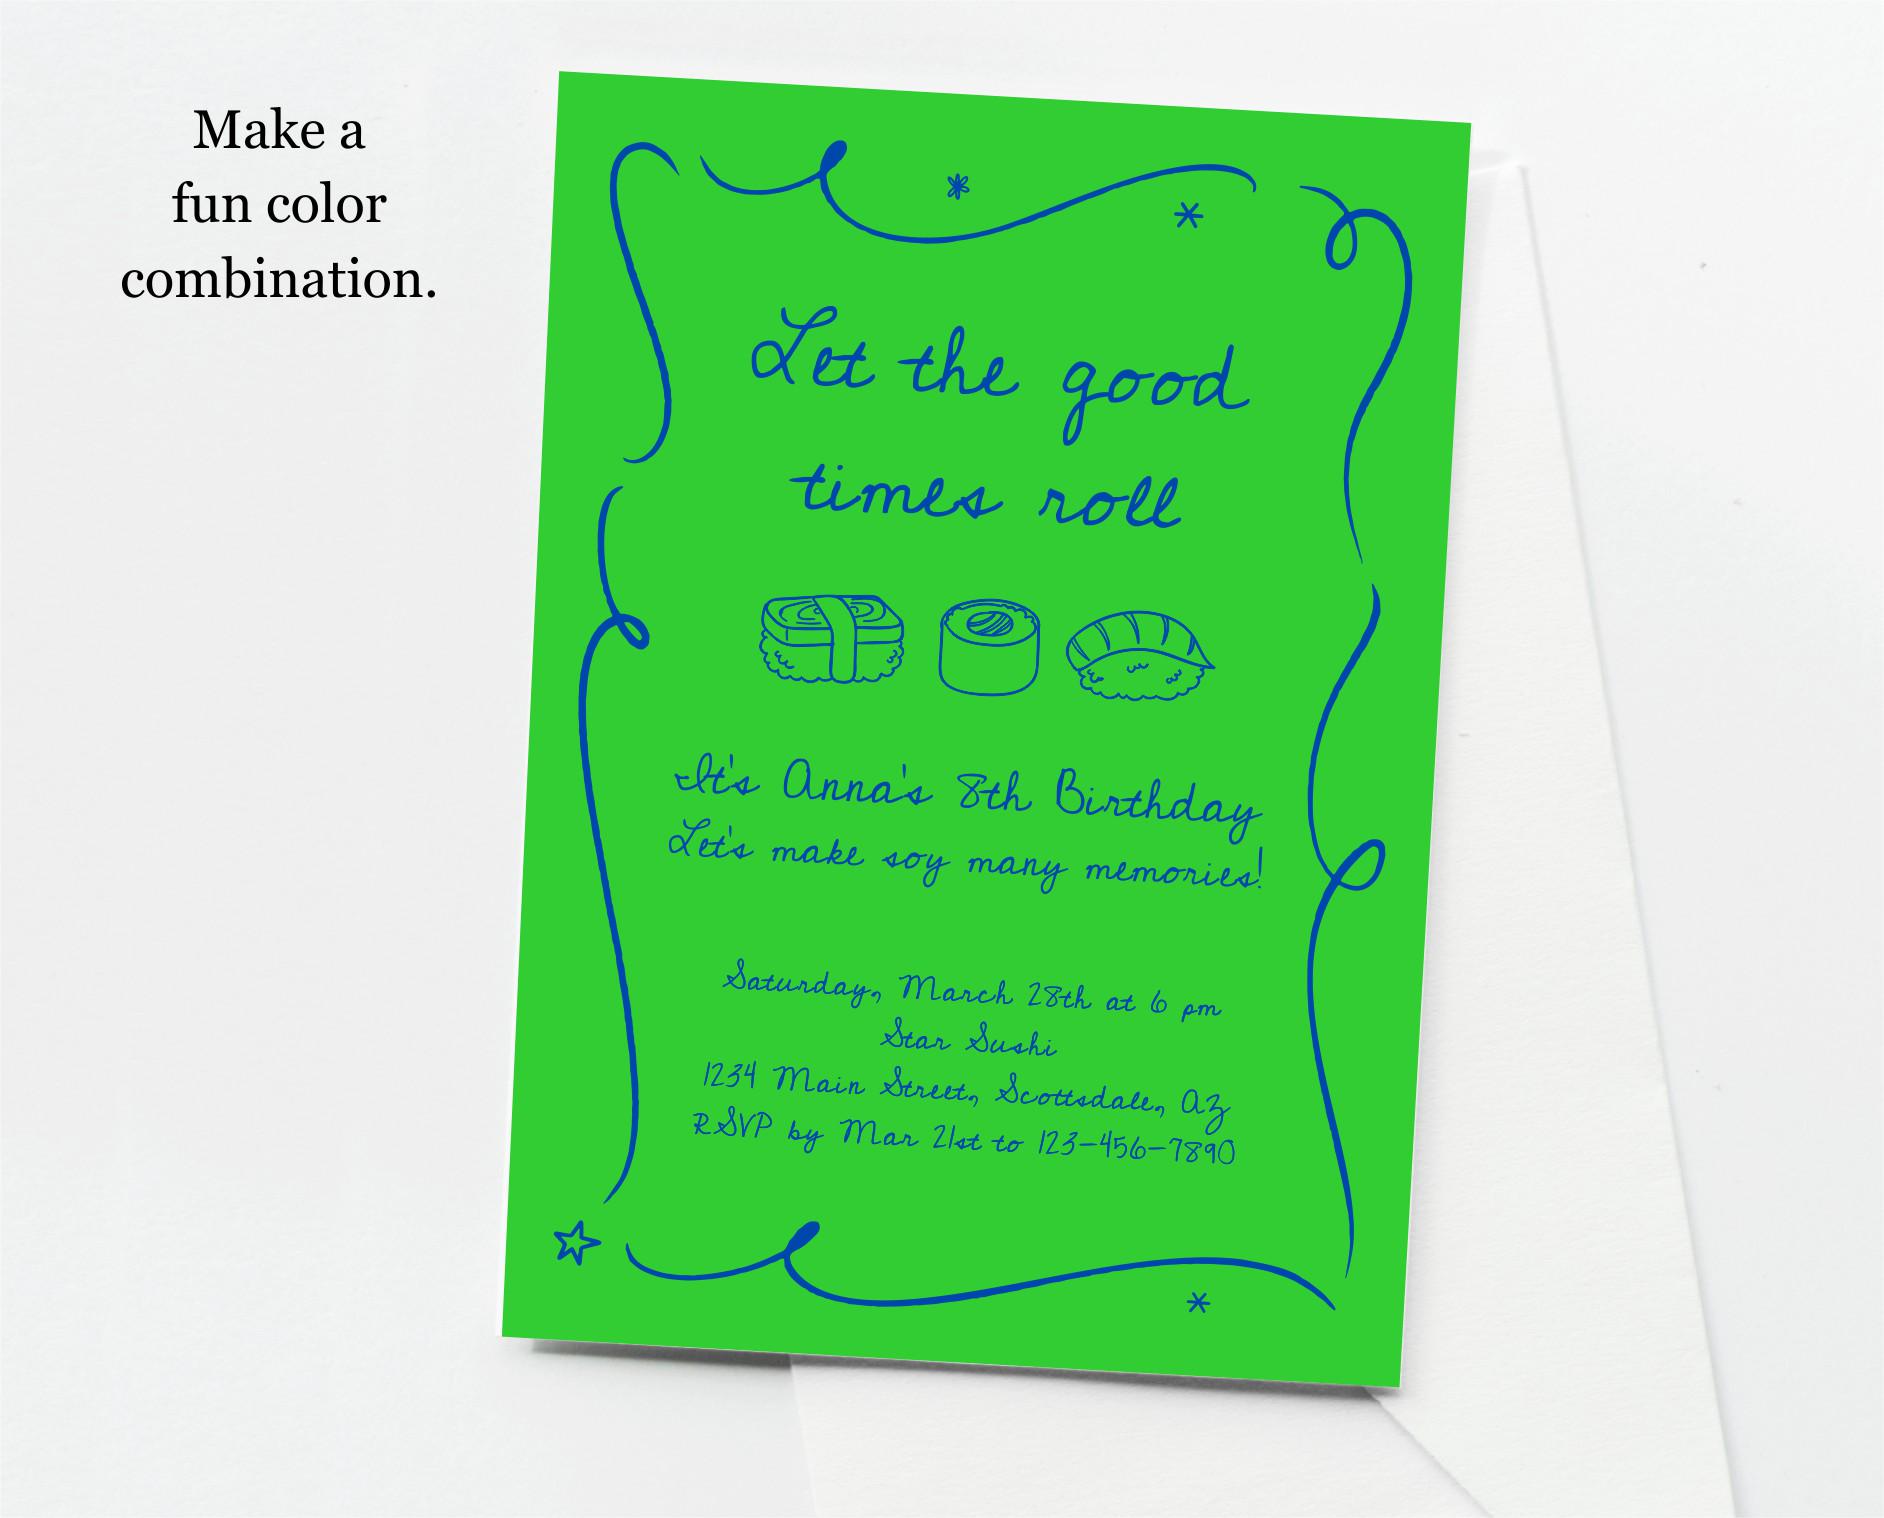 Make a
fun color
combination.
Let the good
times roll
It's Anna's 8th Birthday
Let's make soy many memories!
Saturday, March 28th at 6 pm
Star Sushi
1234 Main Street, Scottsdale, AZ
RSVP by Mar 21st to 123-456-7890